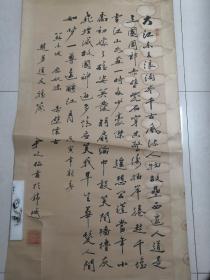 大江東去浪淘盡千古風流人物故壘西邊人道是
三國周郎赤壁亂石穿空驚濤拍岸捲起千堆
雪江山如畫一時多少豪傑遙想公瑾當年小
喬初嫁了雄姿英發羽扇綸巾談笑間檣櫓灰
飛煙滅故國神遊多情應笑我早生華髮人間
如夢一尊還酹江月
念奴嬌 赤壁懷古
書於錦城